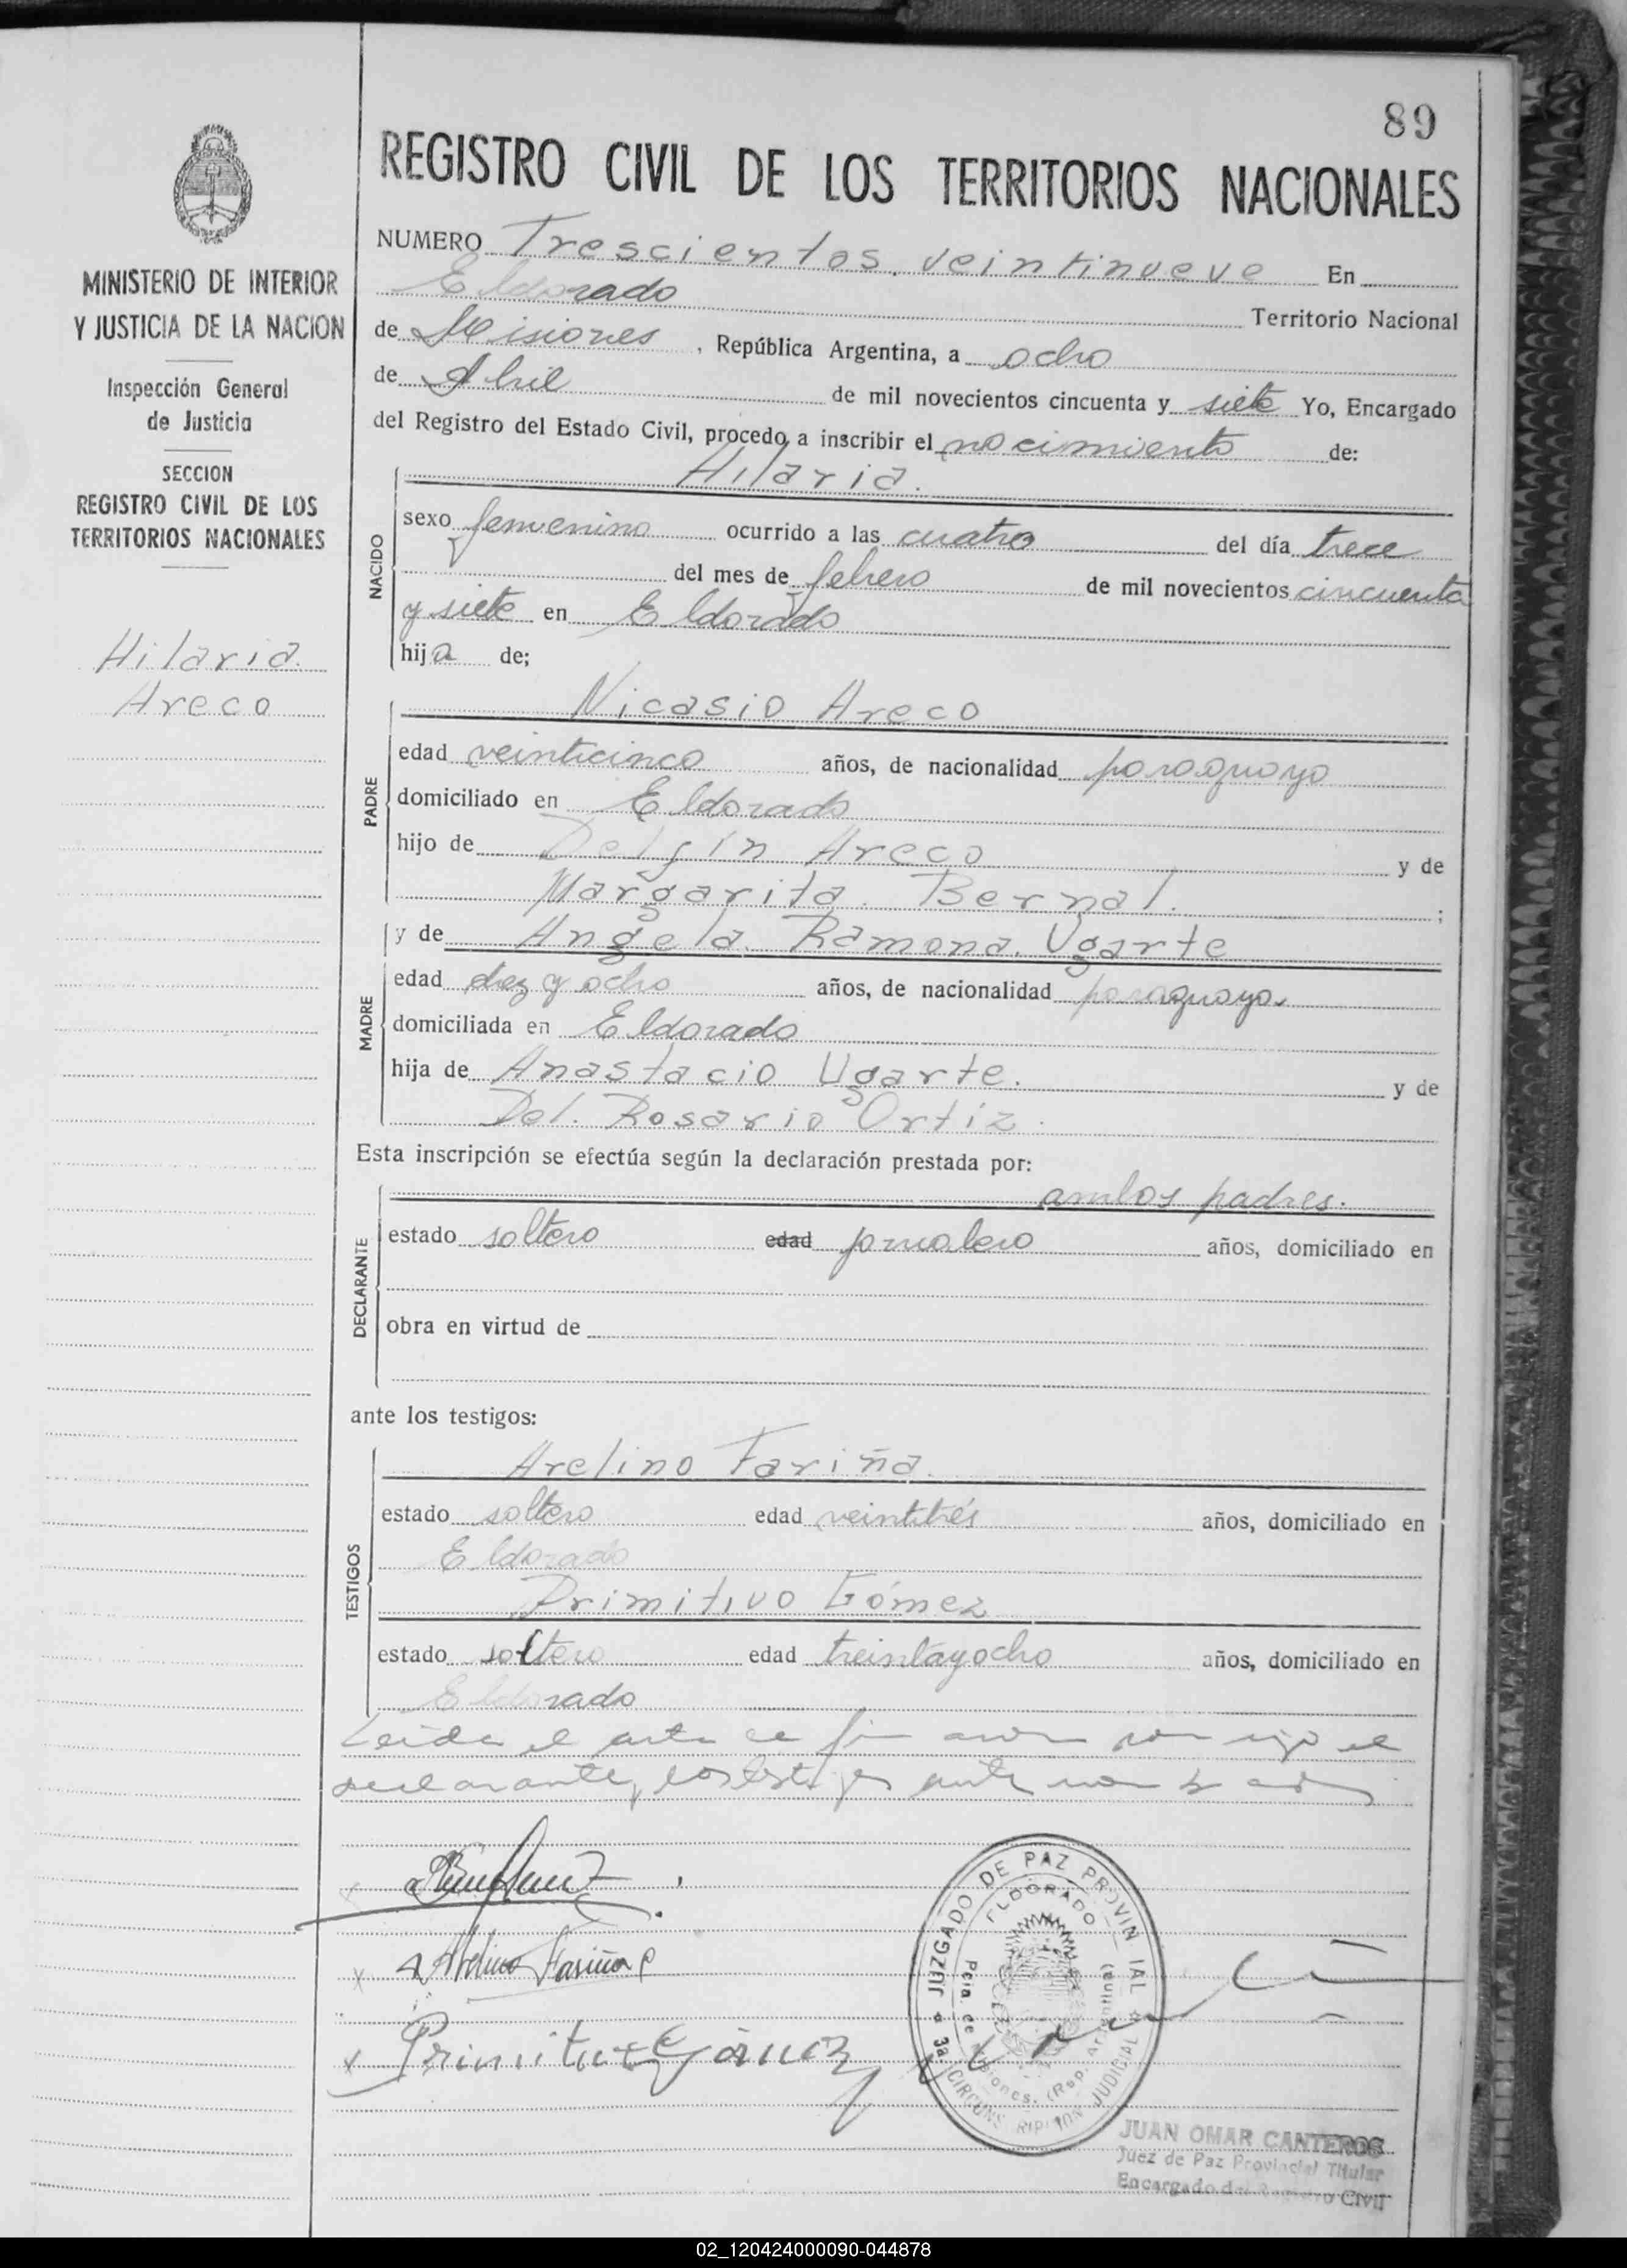 89
REGISTRO CIVIL DE LOS TERRITORIOS NACIONALES
MINISTERIO DE INTERIOR
Y JUSTICIA DE LA NACION
Inspección General
de Justicia
SECCION
REGISTRO CIVIL DE LOS
TERRITORIOS NACIONALES
Hilaria
Areco
NUMERO Trescientos veintinueve En
Eldorado Territorio Nacional
de Misiones, República Argentina, a ocho
de Abril de mil novecientos cincuenta y siete Yo, Encargado
del Registro del Estado Civil, procedo a inscribir el nacimiento de:
NACIDO
Hilaria.
sexo femenino ocurrido a las cuatro del día trece
del mes de febrero de mil novecientos cincuenta
y siete en Eldorado
hija de;
PADRE
Nicasio Areco
edad veinticinco años, de nacionalidad paraguayo
domiciliado en Eldorado
hijo de Delfín Areco y de
Margarita Bernal. ;
MADRE
y de Angela Ramona Ugarte
edad diez y ocho años, de nacionalidad paraguaya.
domiciliada en Eldorado
hija de Anastacio Ugarte. y de
Del. Rosario Ortiz.
Esta inscripción se efectúa según la declaración prestada por:
DECLARANTE
ambos padres.
estado soltero edad jornalero años, domiciliado en
obra en virtud de
ante los testigos:
TESTIGOS
Avelino Fariña
estado soltero edad veintitrés años, domiciliado en
Eldorado
Primitivo Gómez
estado soltero edad treintayocho años, domiciliado en
Eldorado
Leída el acta la firman conmigo el
declarante, los testigos
Avelino Fariña
Primitivo Gómez
JUZGADO DE PAZ PROVINCIAL
3a. CIRCUNSCRIPCION JUDICIAL
ELDORADO
Pcia. de Misiones. (Rep. Argentina)
JUAN OMAR CANTEROS
Juez de Paz Provincial Titular
Encargado del Registro Civil
02_120424000090-044878